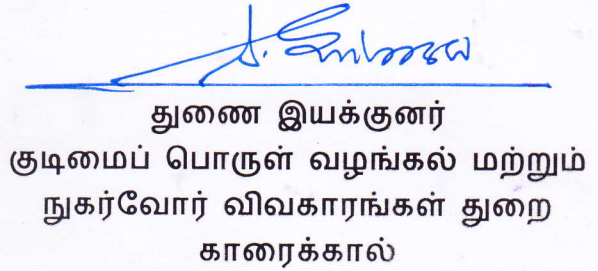 துணை இயக்குனர்
குடிமைப் பொருள் வழங்கல் மற்றும்
நுகர்வோர் விவகாரங்கள் துறை
காரைக்கால்